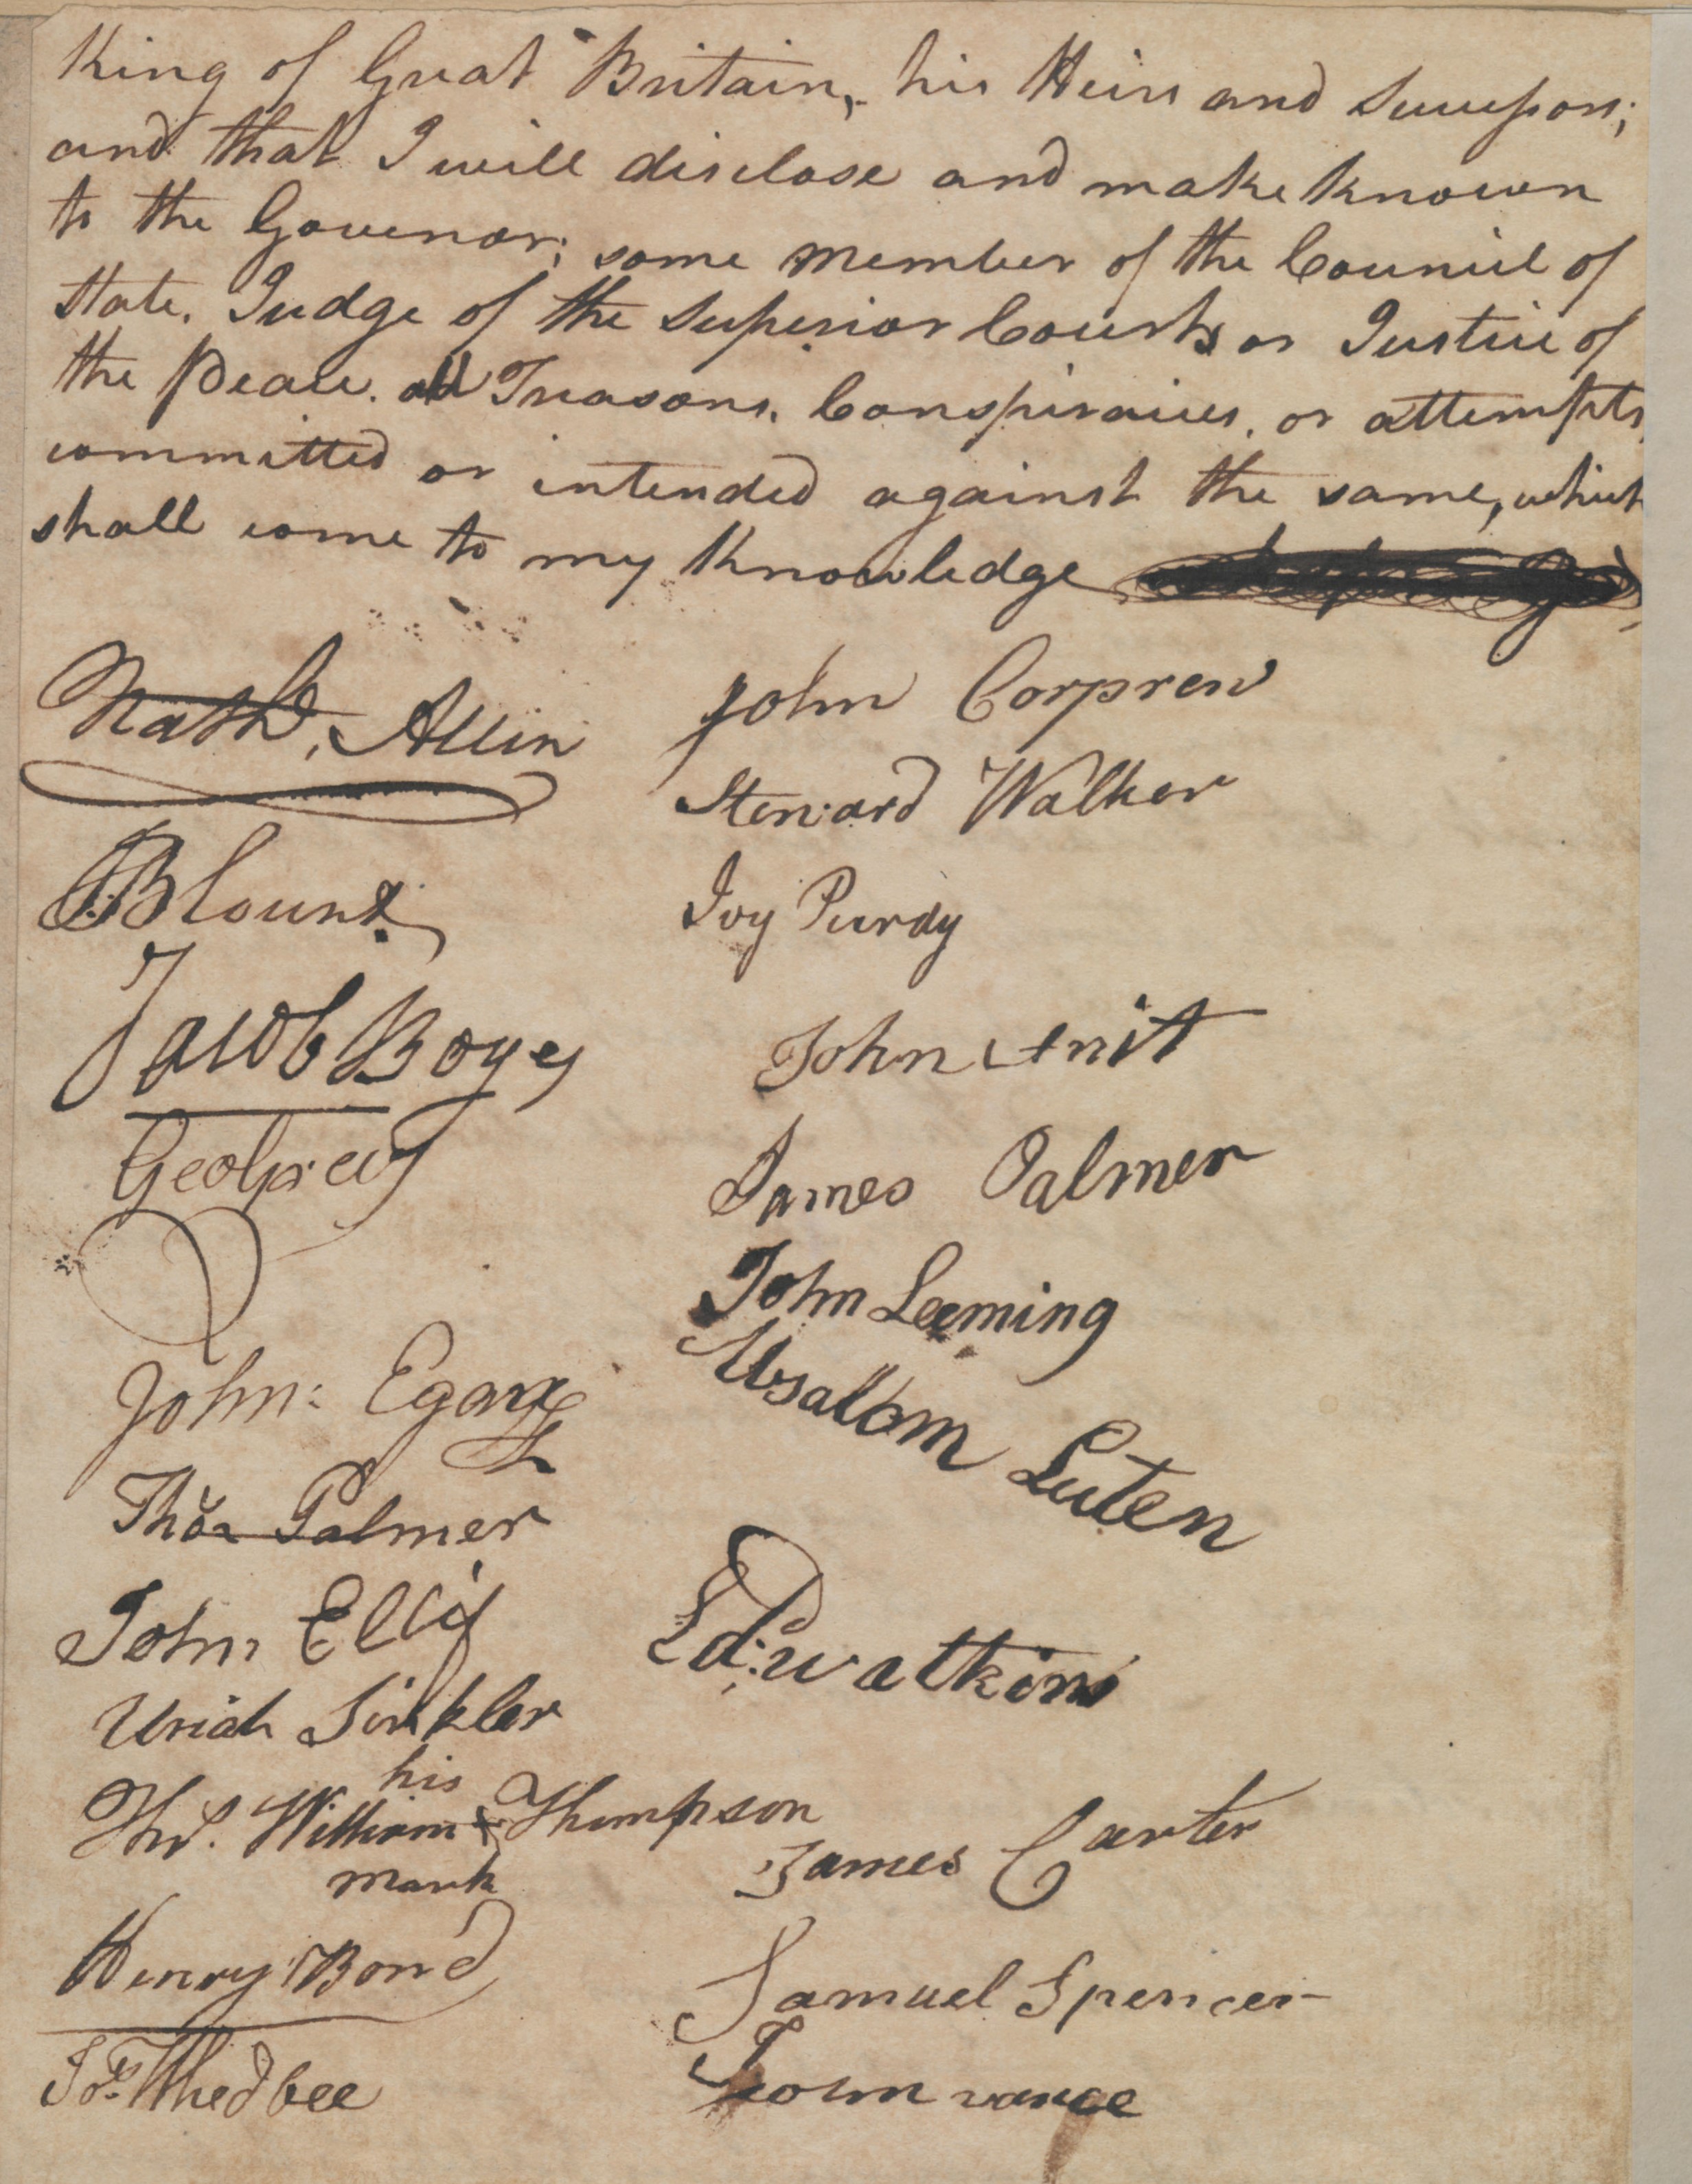 King of Great Britain, his Heirs and Successors;
and that I will disclose and make known
to the Govenor; some member of the Council of
State, Judge of the Superior Courts or Justice of
the Peace. all Treasons, Conspiracies, or attempts,
committed or intended against the same, which
shall come to my Knowledge
Nathl. Allin
Blount
Jacob Boyes
John: Egan
Thos Palmer
John Ellis
Uriah Sinkler
his
Ths. William Thompson
mark
Henry Bond
Jos. Thedbee
John Corprew
Steward Walker
Ivy Purdy
John
James Palmer
John Leeming
Absallom Luten
Ed: watkins
James Carter
Samuel Spencer
John vance